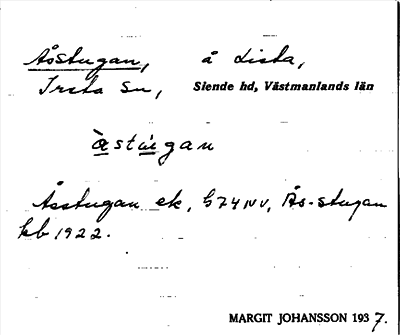 Åsstugan, å Lista,
Irsta sn, Siende hd, Västmanlands län
àstùgan
Åsstugan ek, G 74 NV, Ås-stugan
kb 1922.
MARGIT JOHANSSON 1937.